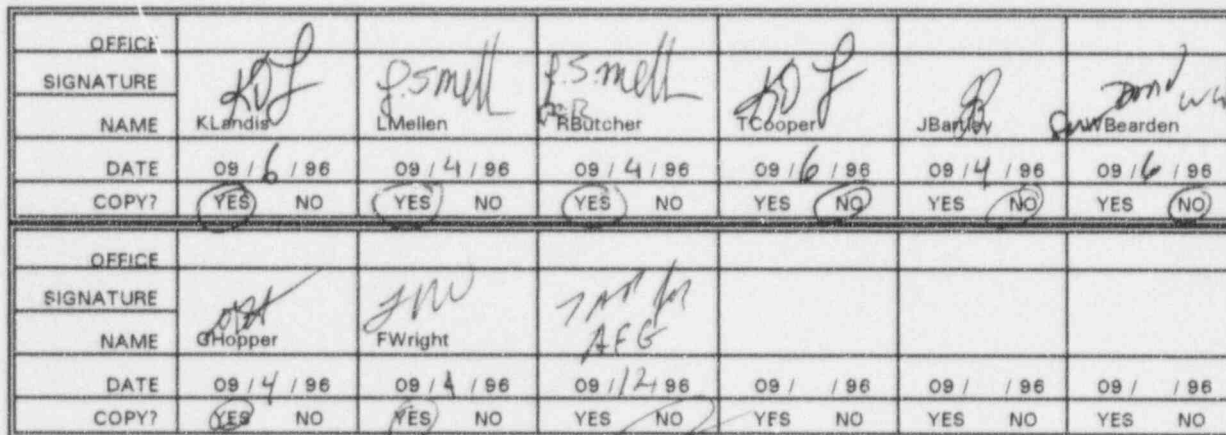 OFFICE
SIGNATURE KDL L.S. Mell L.S. Mell KDL
NAME KLandis LMellen RButcher TCooper JBartley WBearden
DATE 09 / 6 / 96 09 / 4 / 96 09 / 4 / 96 09 / 6 / 96 09 / 4 / 96 09 / 6 / 96
COPY? YES NO YES NO YES NO YES NO YES NO YES NO
OFFICE
SIGNATURE for
NAME GHopper FWright AFG
DATE 09 / 4 / 96 09 / 4 / 96 09 / 12 / 96 09 / / 96 09 / / 96 09 / / 96
COPY? YES NO YES NO YES NO YES NO YES NO YES NO